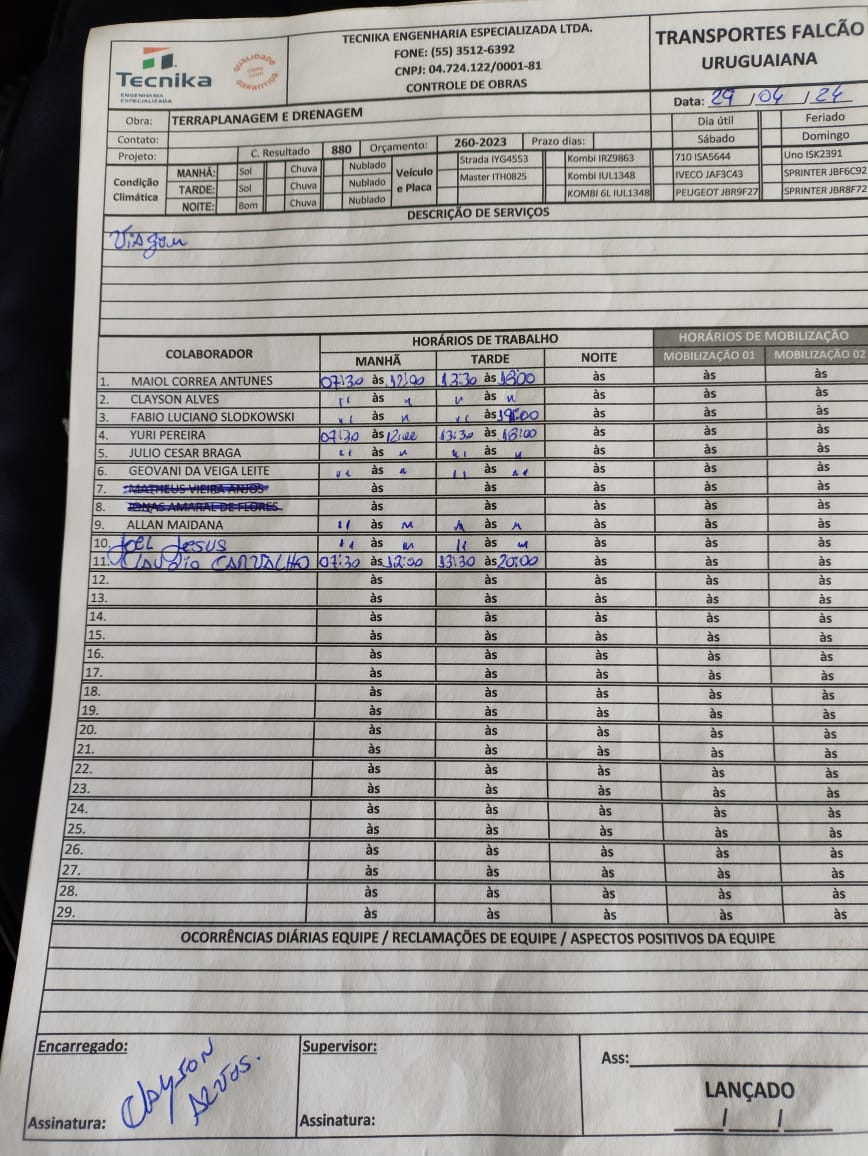 TECNIKA ENGENHARIA ESPECIALIZADA LTDA.
FONE: (55) 3512-6392
CNPJ: 04.724.122/0001-81
CONTROLE DE OBRAS
Tecnika
ENGENHARIA
ESPECIALIZADA
QUALIDADE
GARANTIDA
TRANSPORTES FALCÃO
URUGUAIANA
Data: 29 / 04 / 24
Obra: TERRAPLANAGEM E DRENAGEM
Dia útil Feriado
Contato: Sábado Domingo
Projeto: C. Resultado 880 Orçamento: 260-2023 Prazo dias:
Condição Climática
MANHÃ: Sol Chuva Nublado
TARDE: Sol Chuva Nublado
NOITE: Bom Chuva Nublado
Veículo e Placa
Strada IYG4553 Kombi IRZ9863 710 ISA5644 Uno ISK2391
Master ITH0825 Kombi IUL1348 IVECO JAF3C43 SPRINTER JBF6C92
KOMBI 6L IUL1348 PEUGEOT JBR9F27 SPRINTER JBR8F72
DESCRIÇÃO DE SERVIÇOS
COLABORADOR HORÁRIOS DE TRABALHO HORÁRIOS DE MOBILIZAÇÃO
MANHÃ TARDE NOITE MOBILIZAÇÃO 01 MOBILIZAÇÃO 02
1. MAIOL CORREA ANTUNES 07:30 às 12:00 13:30 às 18:00 às às às
2. CLAYSON ALVES " às " " às " às às às
3. FABIO LUCIANO SLODKOWSKI " às " " às 19:00 às às às
4. YURI PEREIRA 07:30 às 12:00 13:30 às 18:00 às às às
5. JULIO CESAR BRAGA " às " " às " às às às
6. GEOVANI DA VEIGA LEITE " às " " às " às às às
7. MATHEUS VIEIRA ANJOS às às às às às
8. JONAS AMARAL DE FLORES às às às às às
9. ALLAN MAIDANA " às " " às " às às às
10. Joel Jesus " às " " às " às às às
11. Claudio CARVALHO 07:30 às 12:00 13:30 às 20:00 às às às
12. às às às às às
13. às às às às às
14. às às às às às
15. às às às às às
16. às às às às às
17. às às às às às
18. às às às às às
19. às às às às às
20. às às às às às
21. às às às às às
22. às às às às às
23. às às às às às
24. às às às às às
25. às às às às às
26. às às às às às
27. às às às às às
28. às às às às às
29. às às às às às
OCORRÊNCIAS DIÁRIAS EQUIPE / RECLAMAÇÕES DE EQUIPE / ASPECTOS POSITIVOS DA EQUIPE
Encarregado: Supervisor:
Ass:
Clayson
Alves.
LANÇADO
Assinatura: Assinatura: / /